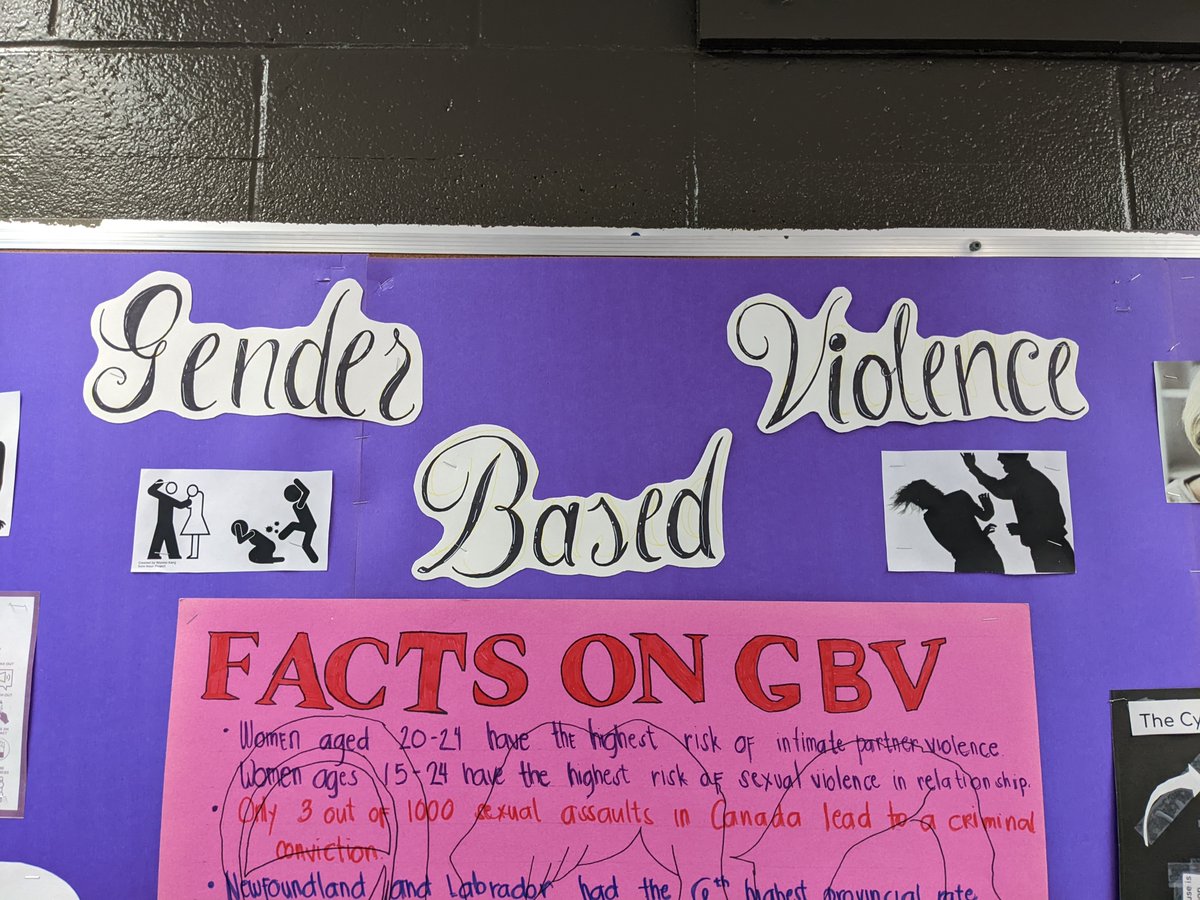 Gender
Violence
Based
FACTS ON GBV
• Women aged 20-24 have the highest risk of intimate partner violence.
Women ages 15-24 have the highest risk of sexual violence in relationship.
• Only 3 out of 1000 sexual assaults in Canada lead to a criminal
conviction.
• Newfoundland and Labrador had the 6th highest provincial rate
The Cy